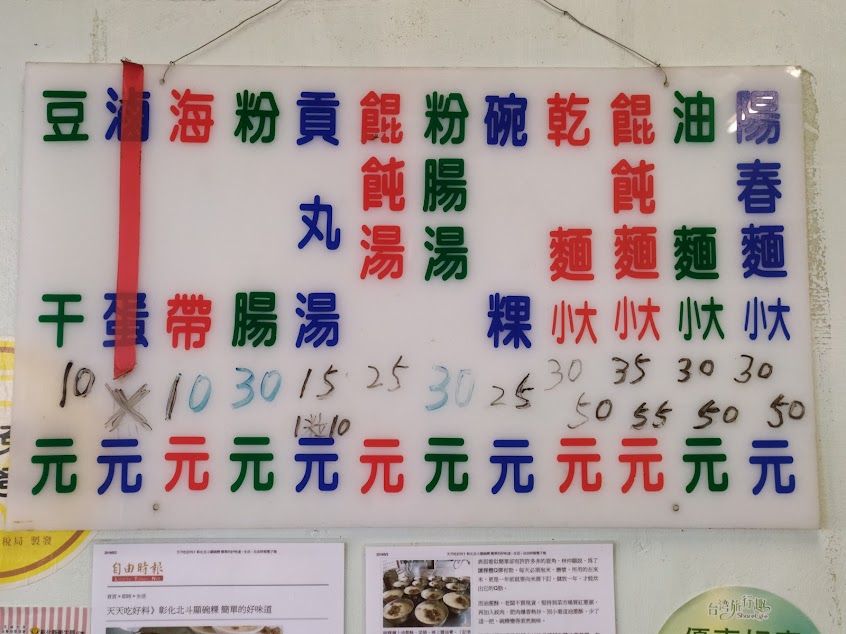 陽春麵 小大 30 50 元
油麵 小大 30 50 元
餛飩麵 小大 35 55 元
乾麵 小大 30 50 元
碗粿 25 元
粉腸湯 30 元
餛飩湯 25 元
貢丸湯 15 1粒10 元
粉腸 30 元
海帶 10 元
滷蛋 X 元
豆干 10 元
稅局 製發
自由時報
首頁 > 即時 > 生活
天天吃好料》彰化北斗顯碗粿 簡單的好味道
台湾旅行趣